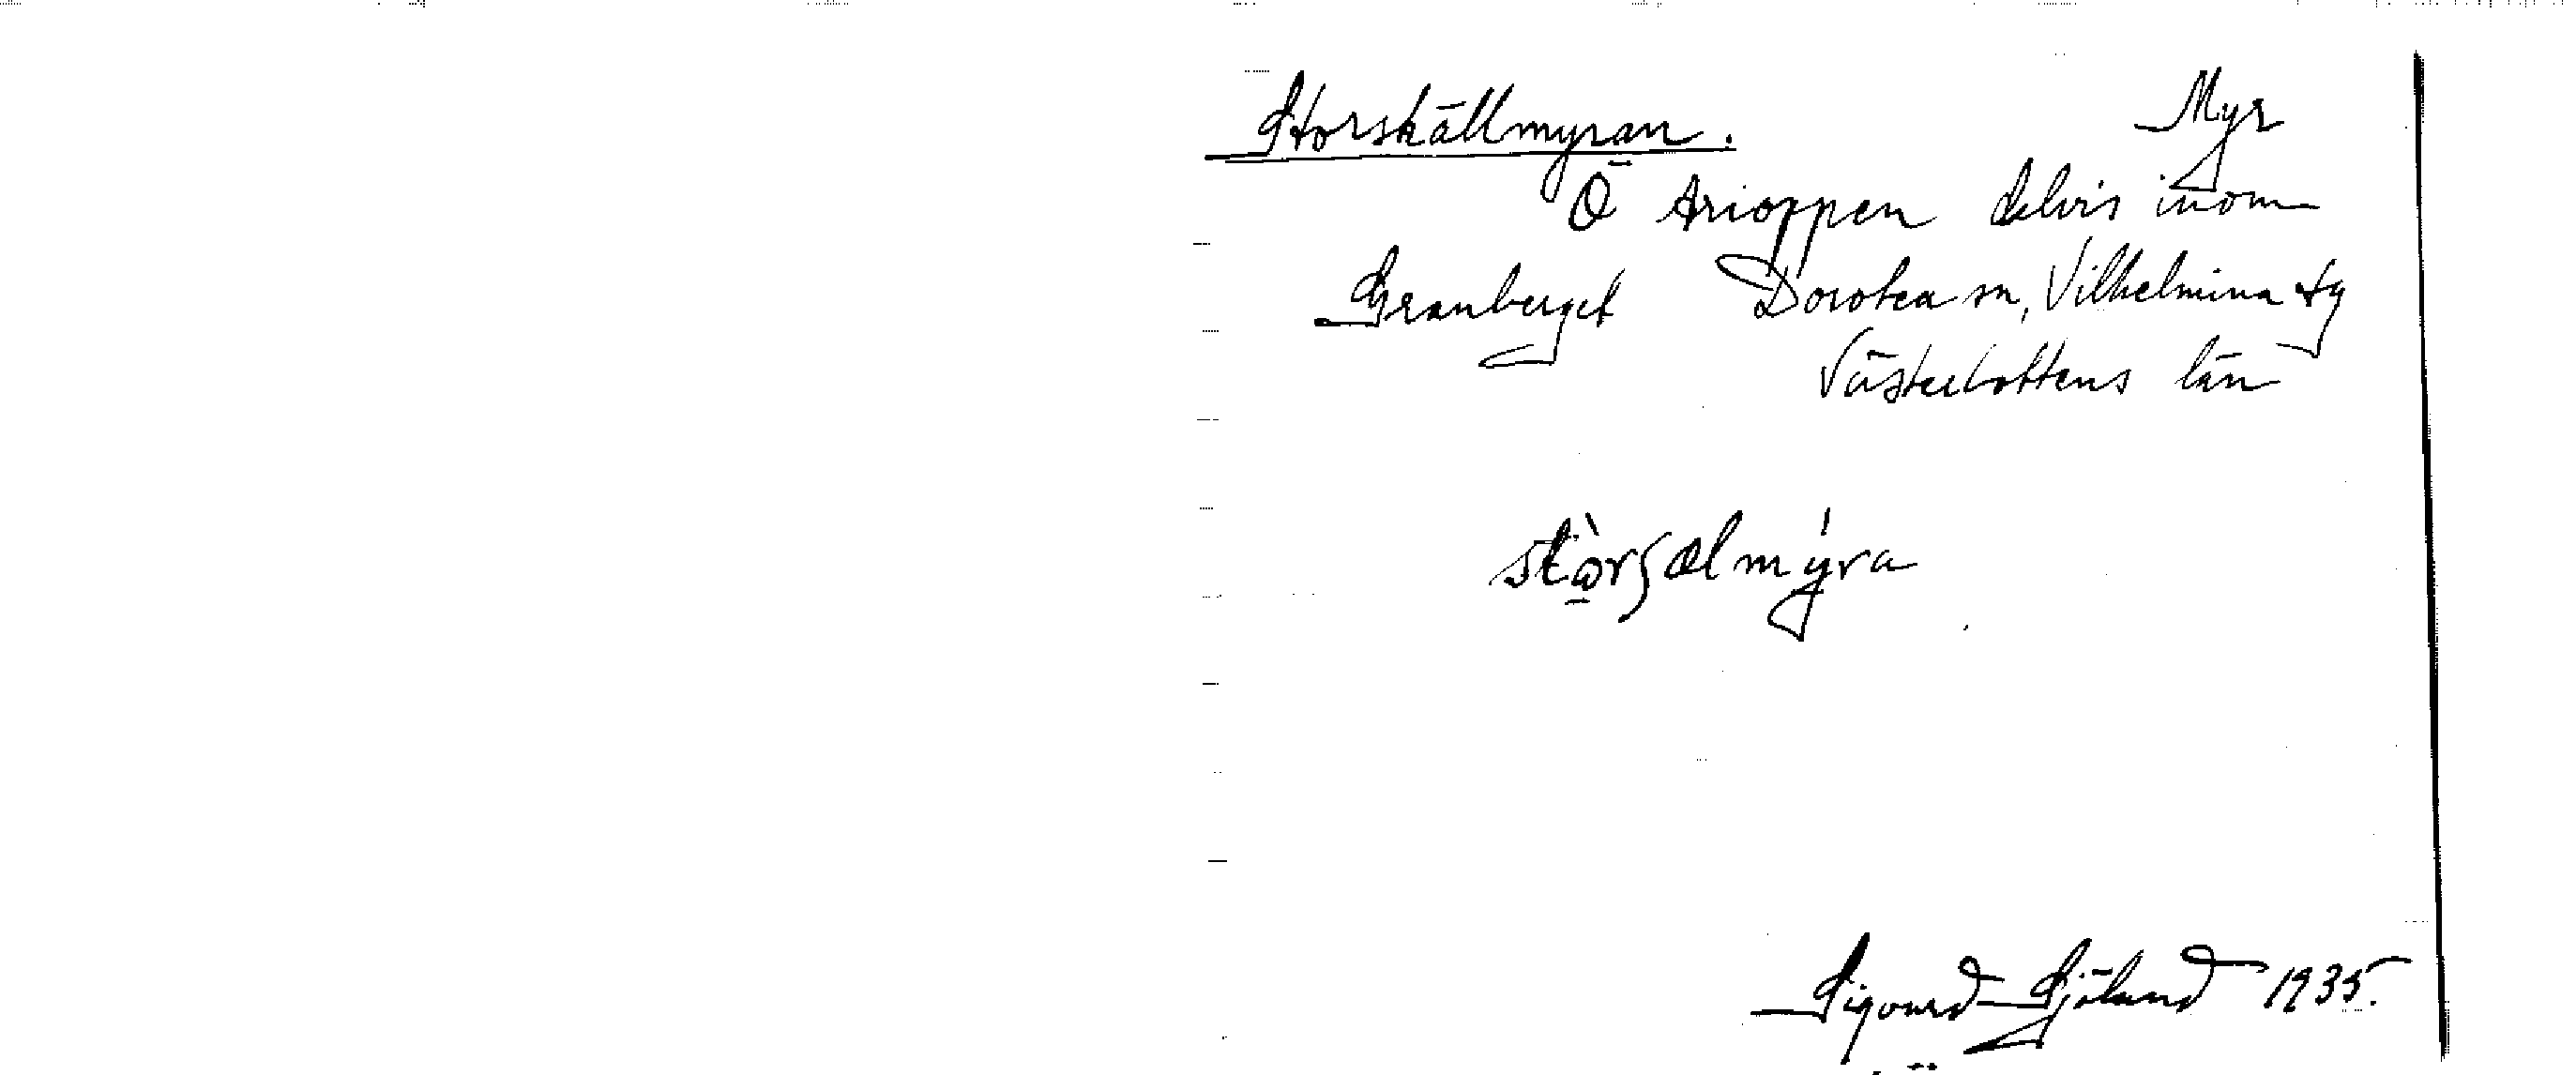 Storskällmyran. Myr
Ö Arioppen delvis inom
Granberget Dorotea sn, Vilhelmina tg
Västerbottens län
stòrʃælmýra
Sigvard Sjölund 1935.